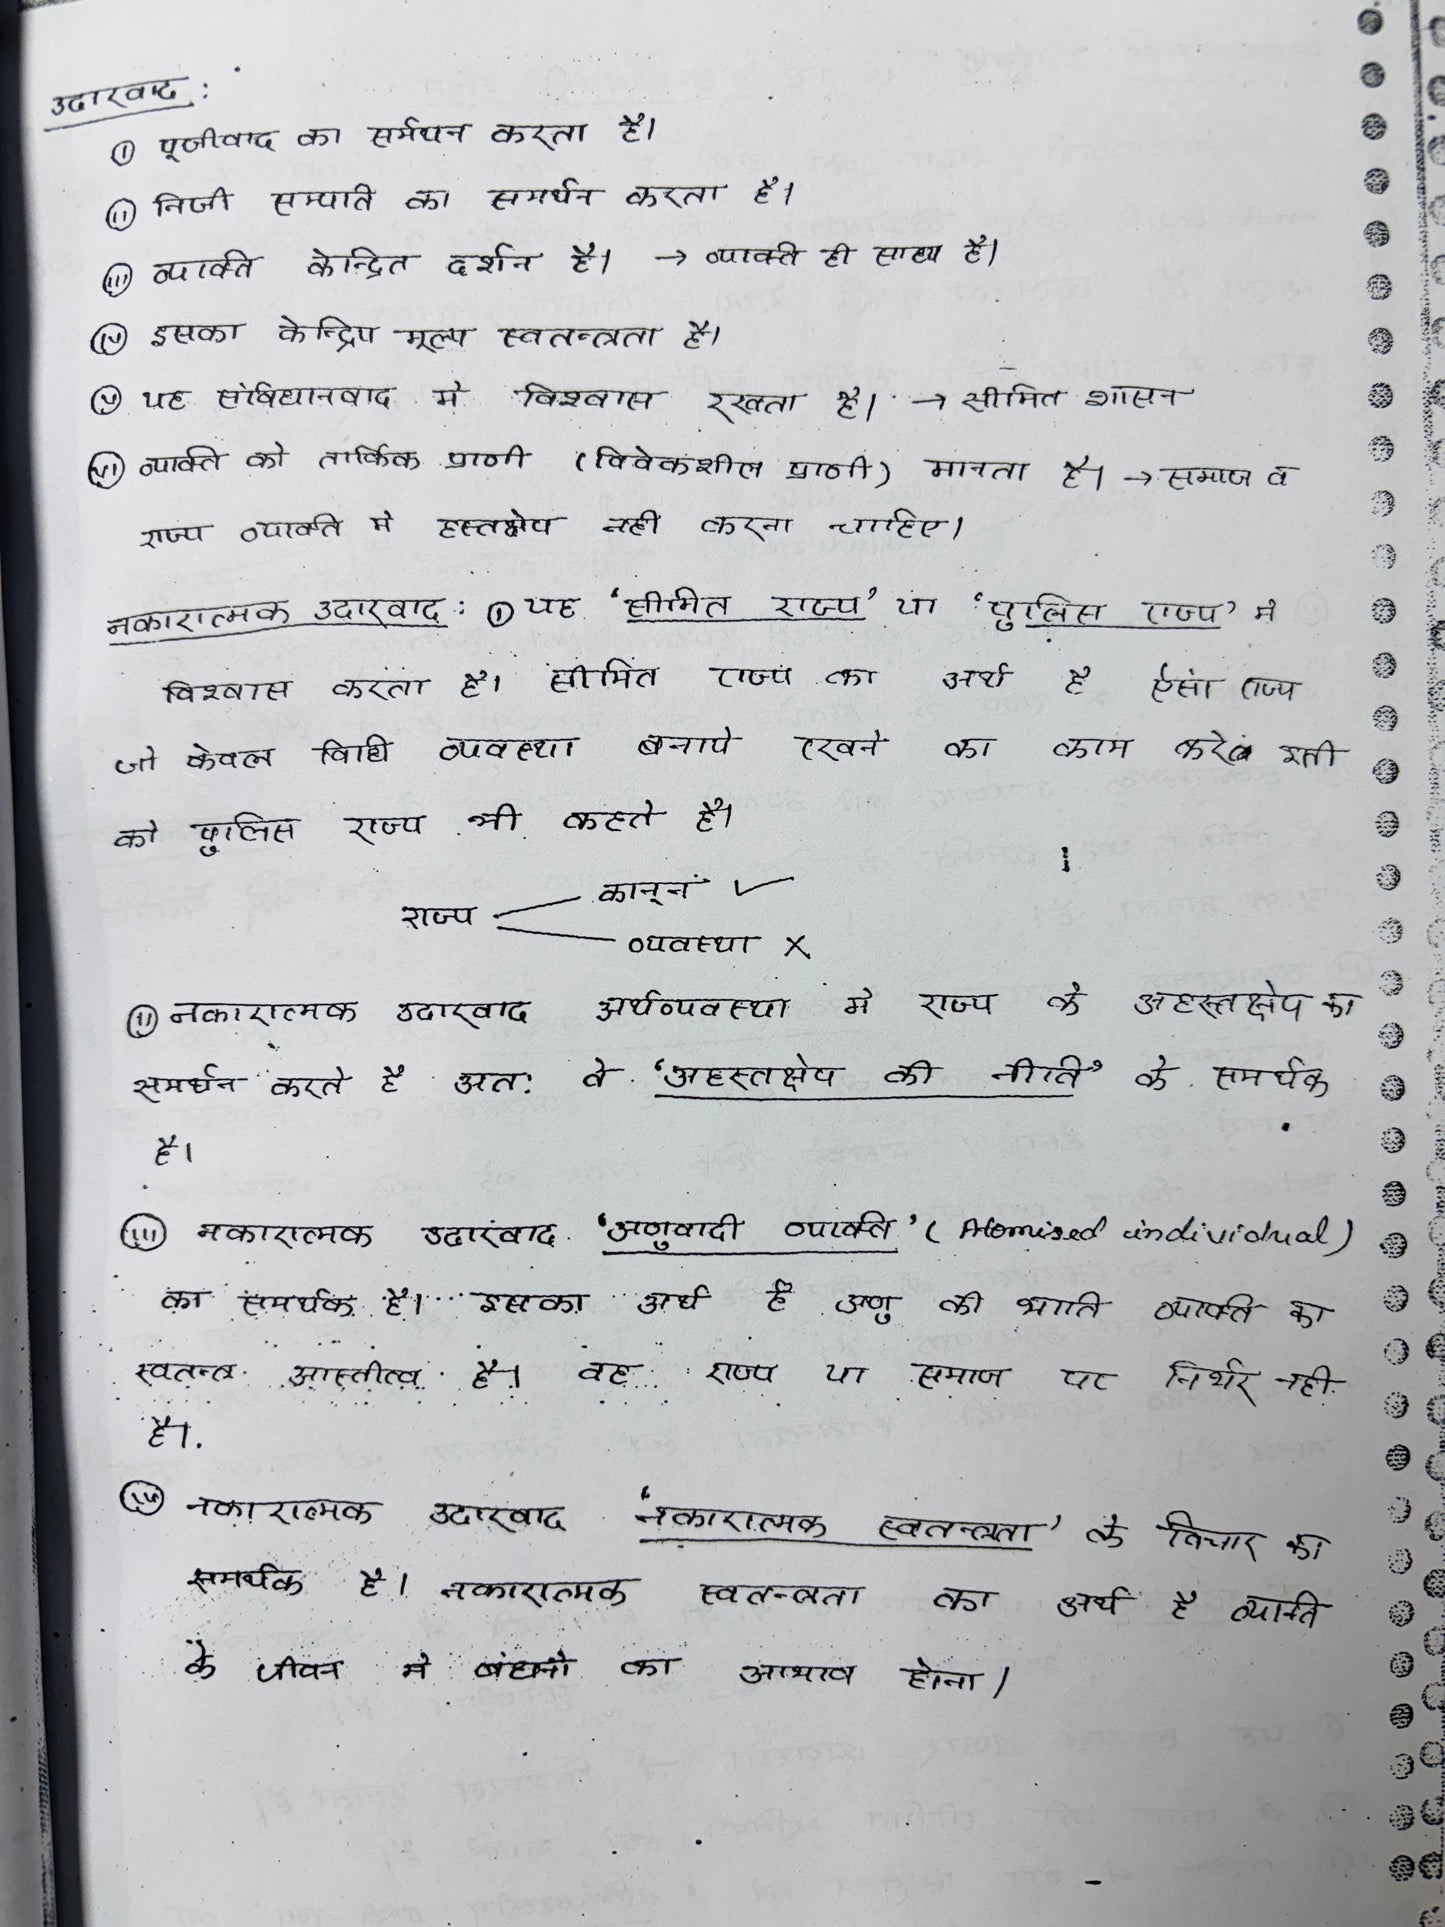 उदारवाद :
(i) पूजीवाद का सर्मथन करता है।
(ii) निजी सम्पाति का समर्थन करता है।
(iii) व्याक्ति केन्द्रित दर्शन है। → व्याक्ति ही साध्य है।
(iv) इसका केन्द्रिय मूल्य स्वतन्त्रता है।
(v) यह संविधानवाद मे विश्वास रखता है। → सीमित शासन
(vi) व्याक्ति को तार्किक प्राणी (विवेकशील प्राणी) मानता है। → समाज व
राज्य व्याक्ति मे हस्तक्षेप नही करना चाहिए।
नकारात्मक उदारवाद : (i) यह 'सीमित राज्य' या 'पुलिस राज्य' मे
विश्वास करता है। सीमित राज्य का अर्थ है ऐसा राज्य
जो केवल विधि व्यवस्था बनाये रखने का काम करे
को पुलिस राज्य भी कहते है।
कानून ✓
राज्य
व्यवस्था X
(ii) नकारात्मक उदारवाद अर्थव्यवस्था मे राज्य के अहस्तक्षेप का
समर्थन करते है अत: वे 'अहस्तक्षेप की नीति' के समर्थक
है।
(iii) नकारात्मक उदारवाद 'अणुवादी व्याक्ति' (Atomised individual)
का समर्थक है। इसका अर्थ है अणु की भाति व्याक्ति का
स्वतन्त्र आस्तीत्व है। वह राज्य या समाज पर निर्भर नही
है।
(iv) नकारात्मक उदारवाद 'नकारात्मक स्वतन्त्रता' के विचार का
समर्थक है। नकारात्मक स्वतन्त्रता का अर्थ है व्याक्ति
के जीवन मे बंधनो का आभाव होना।